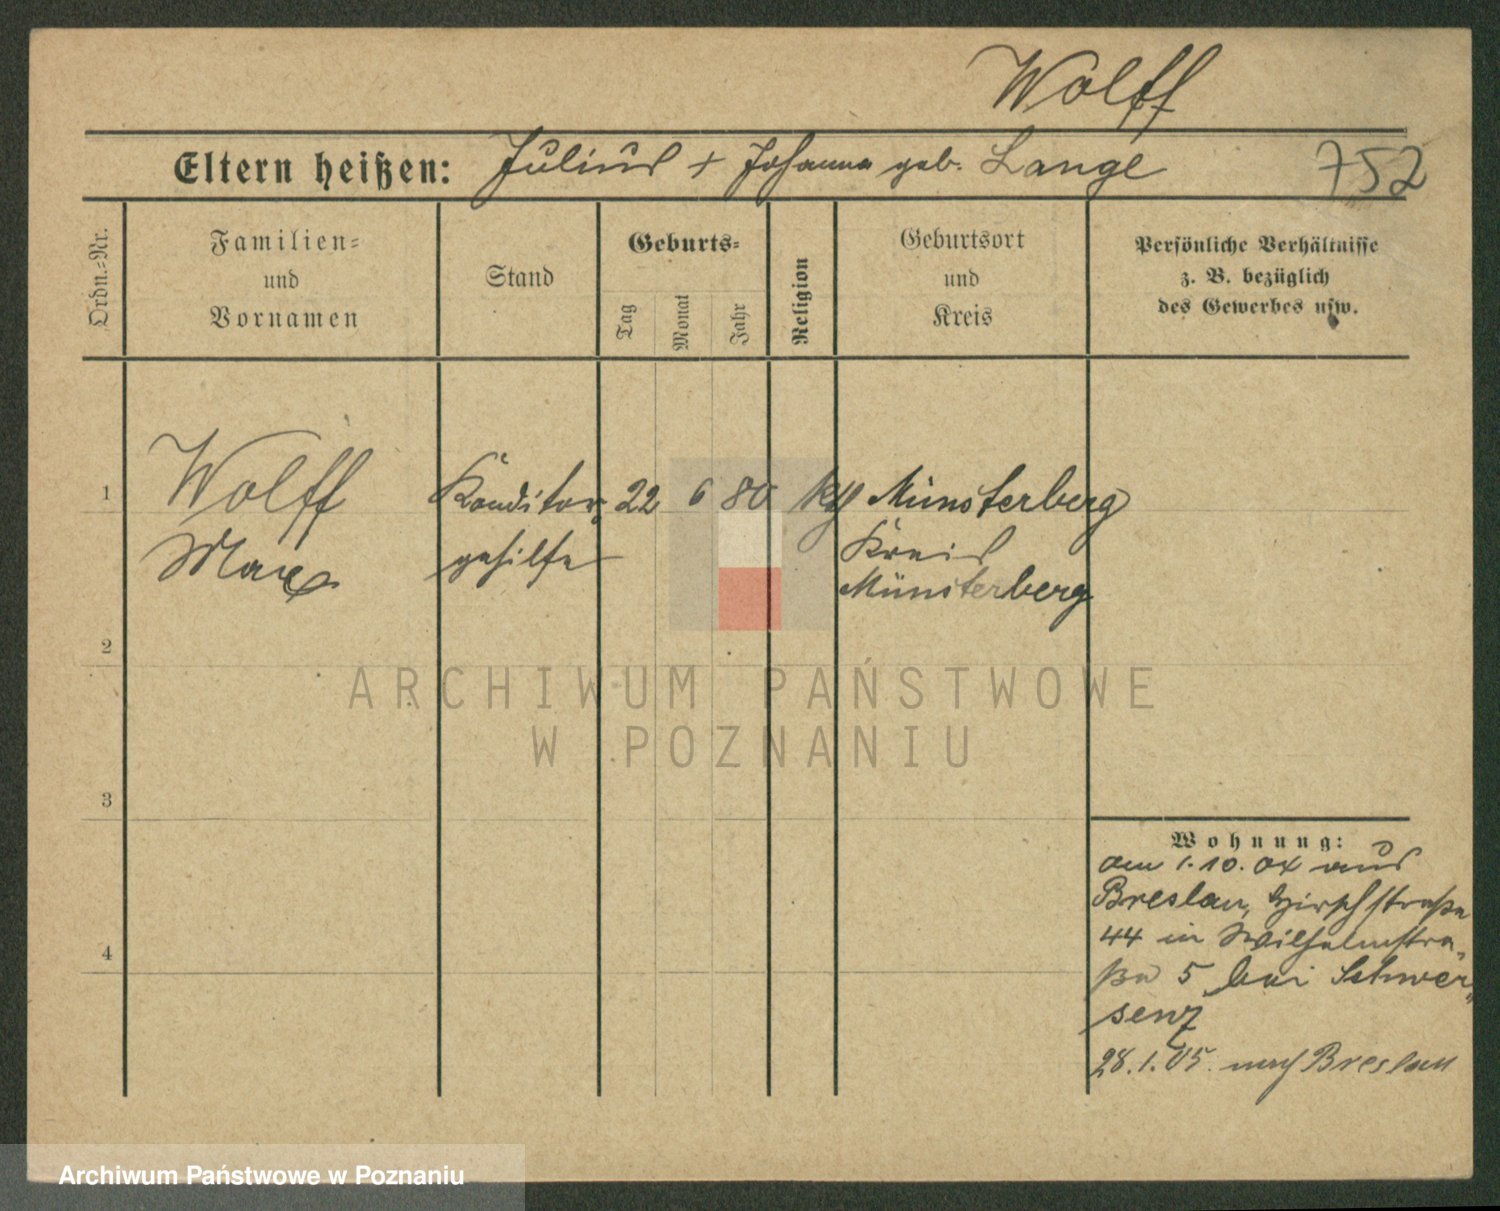 Wolff
Eltern heißen: Julius + Johanna geb. Lange 752
Ordn.-Nr.
Familien-
und
Vornamen
Stand
Geburts-
Tag
Monat
Jahr
Religion
Geburtsort
und
Kreis
Persönliche Verhältnisse
z. B. bezüglich
des Gewerbes usw.
1 Wolff Konditor, 22 6 80 Münsterberg
Max gehilfe Kreis
Münsterberg
2
ARCHIWUM PAŃSTWOWE
W POZNANIU
3
4
Wohnung:
am 1.10.04 aus
Breslau, Hirschstraße
44 in Wilhelmstra-
ße 5 bei Schwer-
senz
28.1.05. nach Breslau
Archiwum Państwowe w Poznaniu